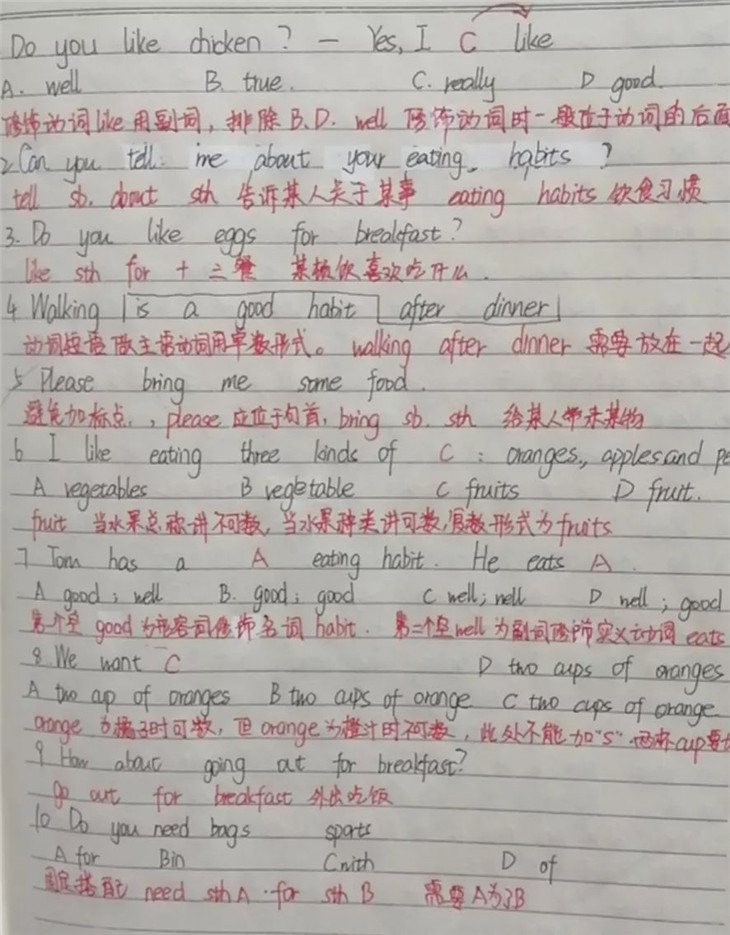 Do you like chicken? — Yes, I C like
A. well B. true. C. really D good.
修饰动词like用副词，排除B.D. well 修饰动词时一般位于动词的后面
2 Can you tell me about your eating habits ?
tell sb. about sth 告诉某人关于某事 eating habits 饮食习惯
3. Do you like eggs for breakfast?
like sth for + 三餐 某顿饭喜欢吃什么.
4 Walking is a good habit after dinner
动词短语做主语动词用单数形式。 walking after dinner 需要放在一起
5 Please bring me some food.
避免加标点., please 应位于句首, bring sb. sth 给某人带来某物
6 I like eating three kinds of C : oranges, apples and pe
A vegetables B vegetable C fruits D fruit.
fruit 当水果总称讲不可数，当水果种类讲可数,复数形式为fruits
7 Tom has a A eating habit. He eats A.
A good; well B. good; good C well; well D well; good
第一个空 good 为形容词修饰名词 habit. 第二个空well 为副词修饰实义动词 eats
8 We want C D two cups of oranges
A two cup of oranges B two cups of orange C two cups of orange
orange 为橘子时可数，但orange为橙汁时不可数，此处不能加"s".两杯cup要
9 How about going out for breakfast?
go out for breakfast 外出吃饭
10 Do you need bags sports
A for B in C with D of
固定搭配 need sth A for sth B 需要A为了B